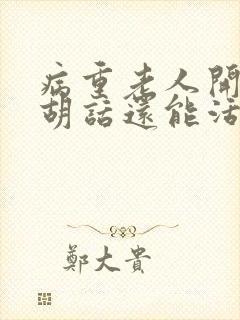 病重老人開
胡話還能活
鄭大貴